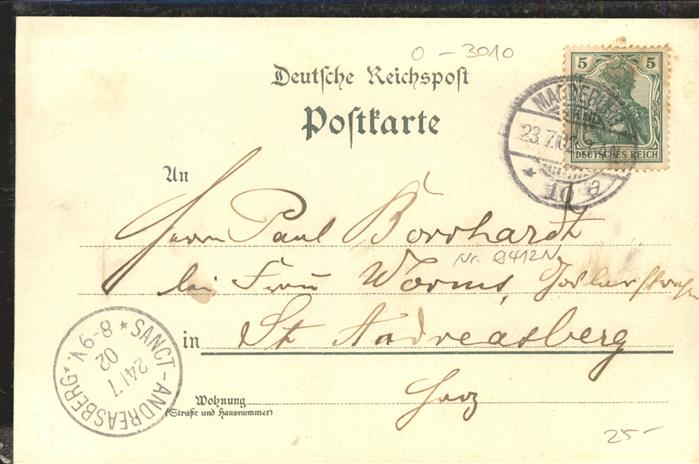 O - 3010
Deutsche Reichspost
Postkarte
5 5
DEUTSCHES REICH
MAGDEBURG
23.7.02
* 10 a
An
Herrn Paul Borchardt
Nr. 2412N
bei Frau Worms,
in St. Andreasberg
Harz
Wohnung
(Straße und Hausnummer)
SANCT-ANDREASBERG
24/7
02
8-9V.
25-